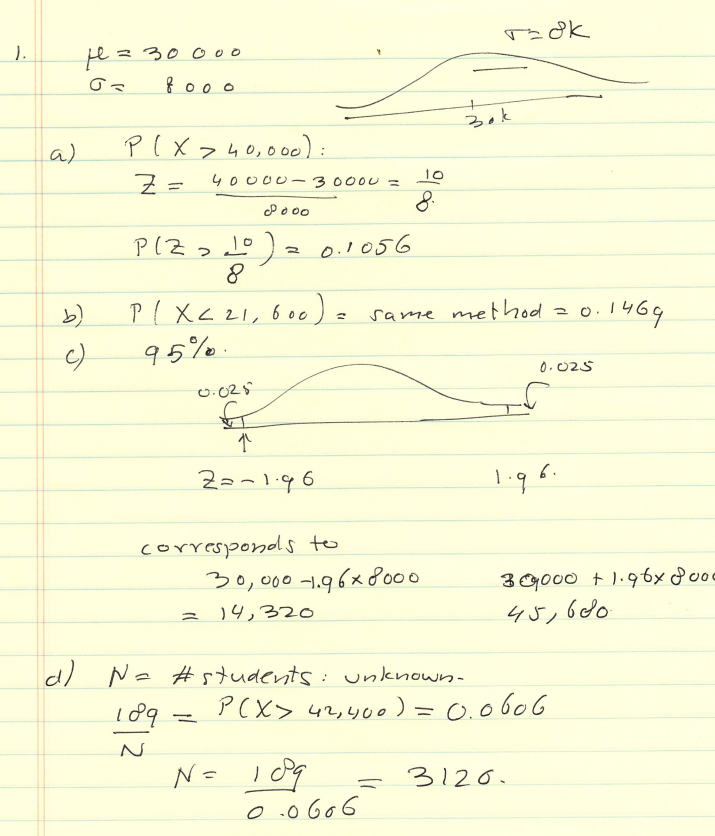 σ = 8K
1. μ = 30000
σ = 8000
30k
a) P(X > 40,000):
Z = (40000 - 30000)/8000 = 10/8.
P(Z > 10/8) = 0.1056
b) P(X < 21,600) = same method = 0.1469
c) 95%.
0.025 0.025
Z = -1.96 1.96.
corresponds to
30,000 - 1.96 x 8000 30,000 + 1.96 x 8000
= 14,320 45,680
d) N = # students: unknown.
189/N = P(X > 42,400) = 0.0606
N = 189/0.0606 = 3120.